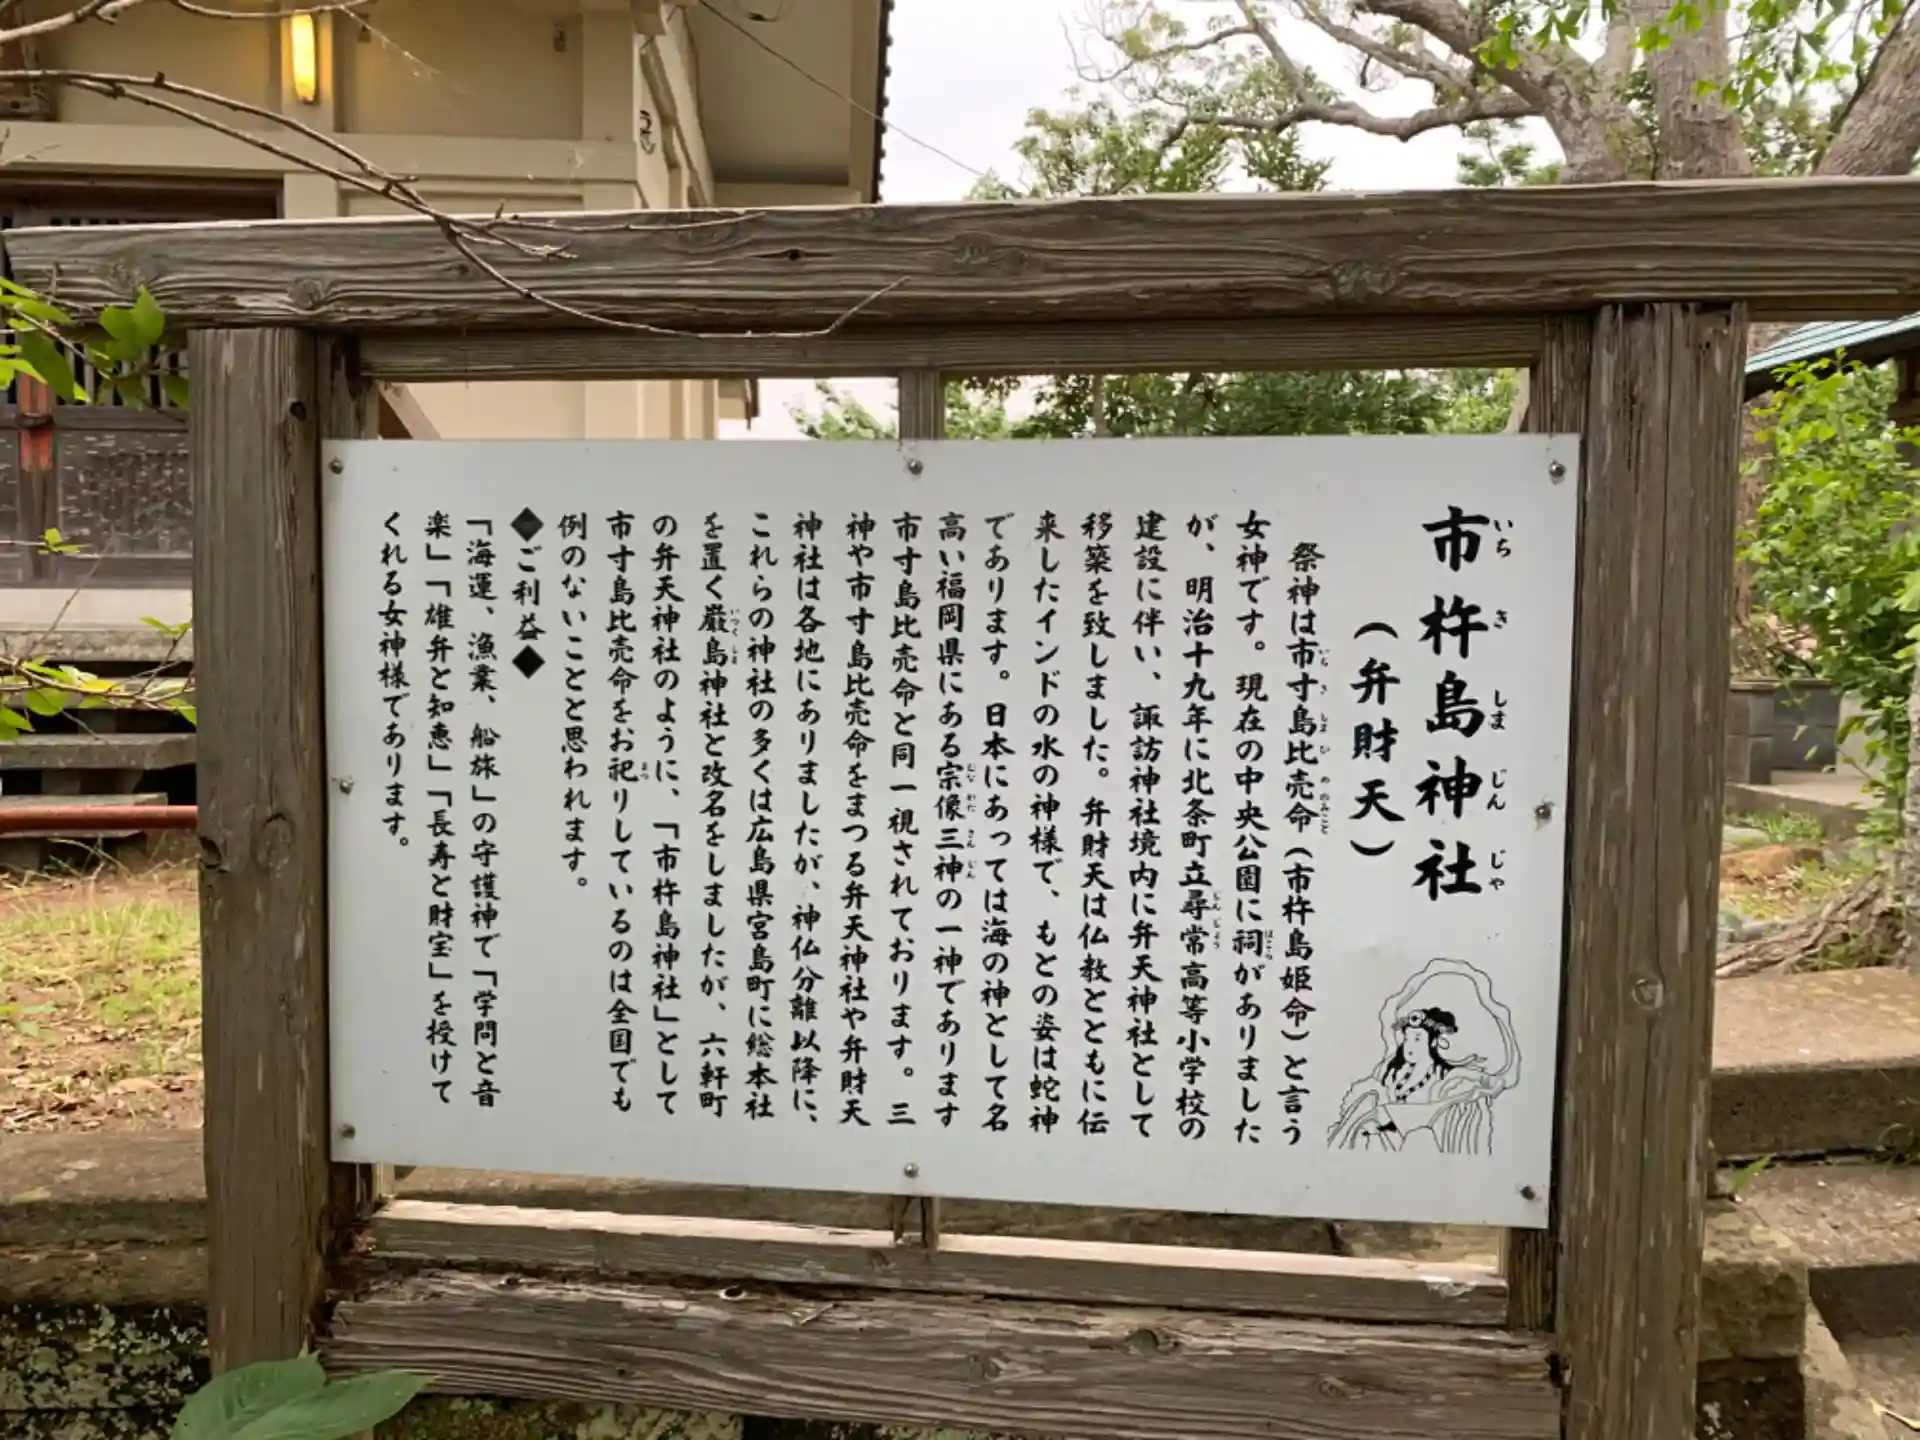 市杵島神社
いちきしまじんじゃ
（弁財天）
祭神は市寸島比売命（市杵島姫命）と言う
いちきしまひめのみこと
女神です。現在の中央公園に祠がありました
ほこら
が、明治十九年に北条町立尋常高等小学校の
じんじょう
建設に伴い、諏訪神社境内に弁天神社として
移築を致しました。弁財天は仏教とともに伝
来したインドの水の神様で、もとの姿は蛇神
であります。日本にあっては海の神として名
高い福岡県にある宗像三神の一神であります
むなかたさんじん
市寸島比売命と同一視されております。三
神や市寸島比売命をまつる弁天神社や弁財天
神社は各地にありましたが、神仏分離以降に、
これらの神社の多くは広島県宮島町に総本社
を置く厳島神社と改名をしましたが、六軒町
いつくしま
の弁天神社のように、「市杵島神社」として
市寸島比売命をお祀りしているのは全国でも
まつ
例のないことと思われます。
◆ご利益◆
「海運、漁業、船旅」の守護神で「学問と音
楽」「雄弁と知恵」「長寿と財宝」を授けて
くれる女神様であります。